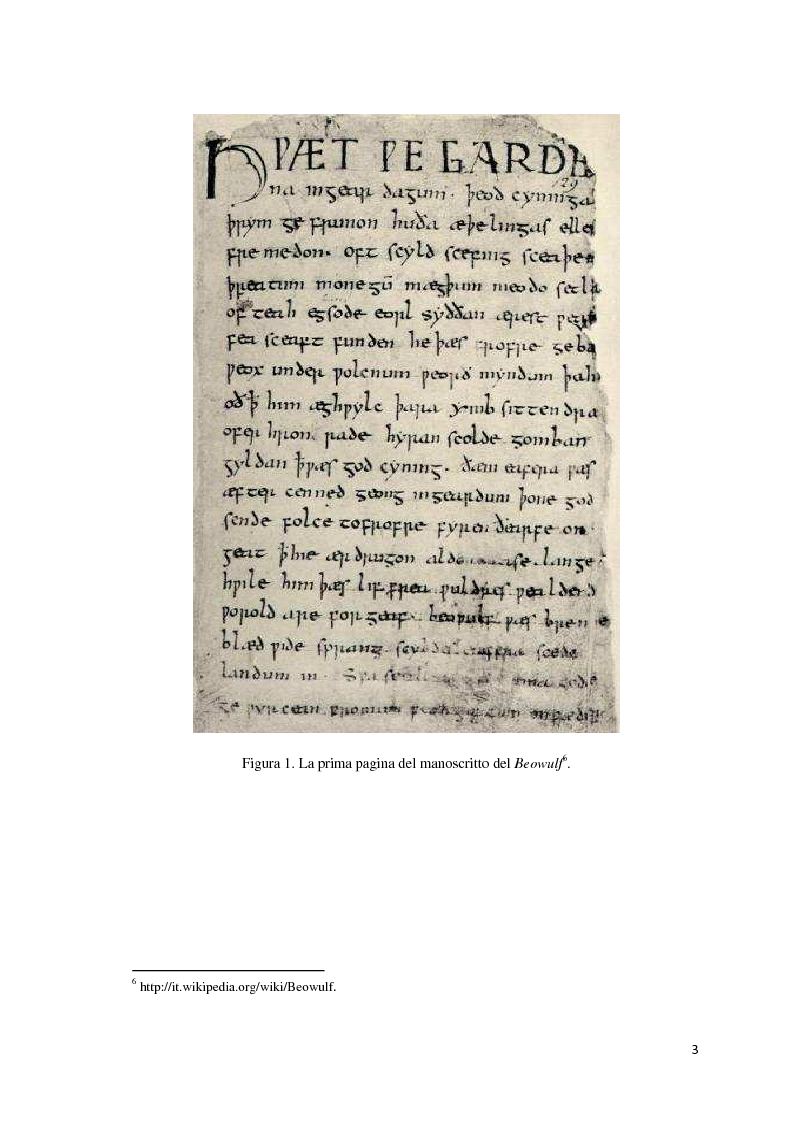 HǷÆT ǷE GARDE
na ingear dagum. þeod cyninga
þrym ge frunon huða æþelingas elle
fre medon. oft scyld scefing sceaþe
þreatum monegū mægþum meodo setla
of teah egsode eorl syððan ærest ƿear
fea sceaft funden he þæs frofre geba
ƿeox under ƿolcnum ƿeorð myndum þah
oð ꝥ him æghƿylc þara ymb sittendra
ofer hron rade hyran scolde gomban
gyldan ꝥ ƿæs god cyning. ðæm eafera ƿæs
æfter cenned geong ingeardum þone god
sende folce tofrofre fyren ðearfe on
geat ꝥ hie ær drugon aldo ase. lange
hƿile him þæs lif frea ƿuldres ƿealdend
ƿorold are for geaf. beoƿulf ƿæs breme
blæd ƿide sprang scyldes eafera scede
landum in. Sƿa
ge ƿyrcean fromum feoh giftum
Figura 1. La prima pagina del manoscritto del Beowulf⁶.
⁶ http://it.wikipedia.org/wiki/Beowulf.
3